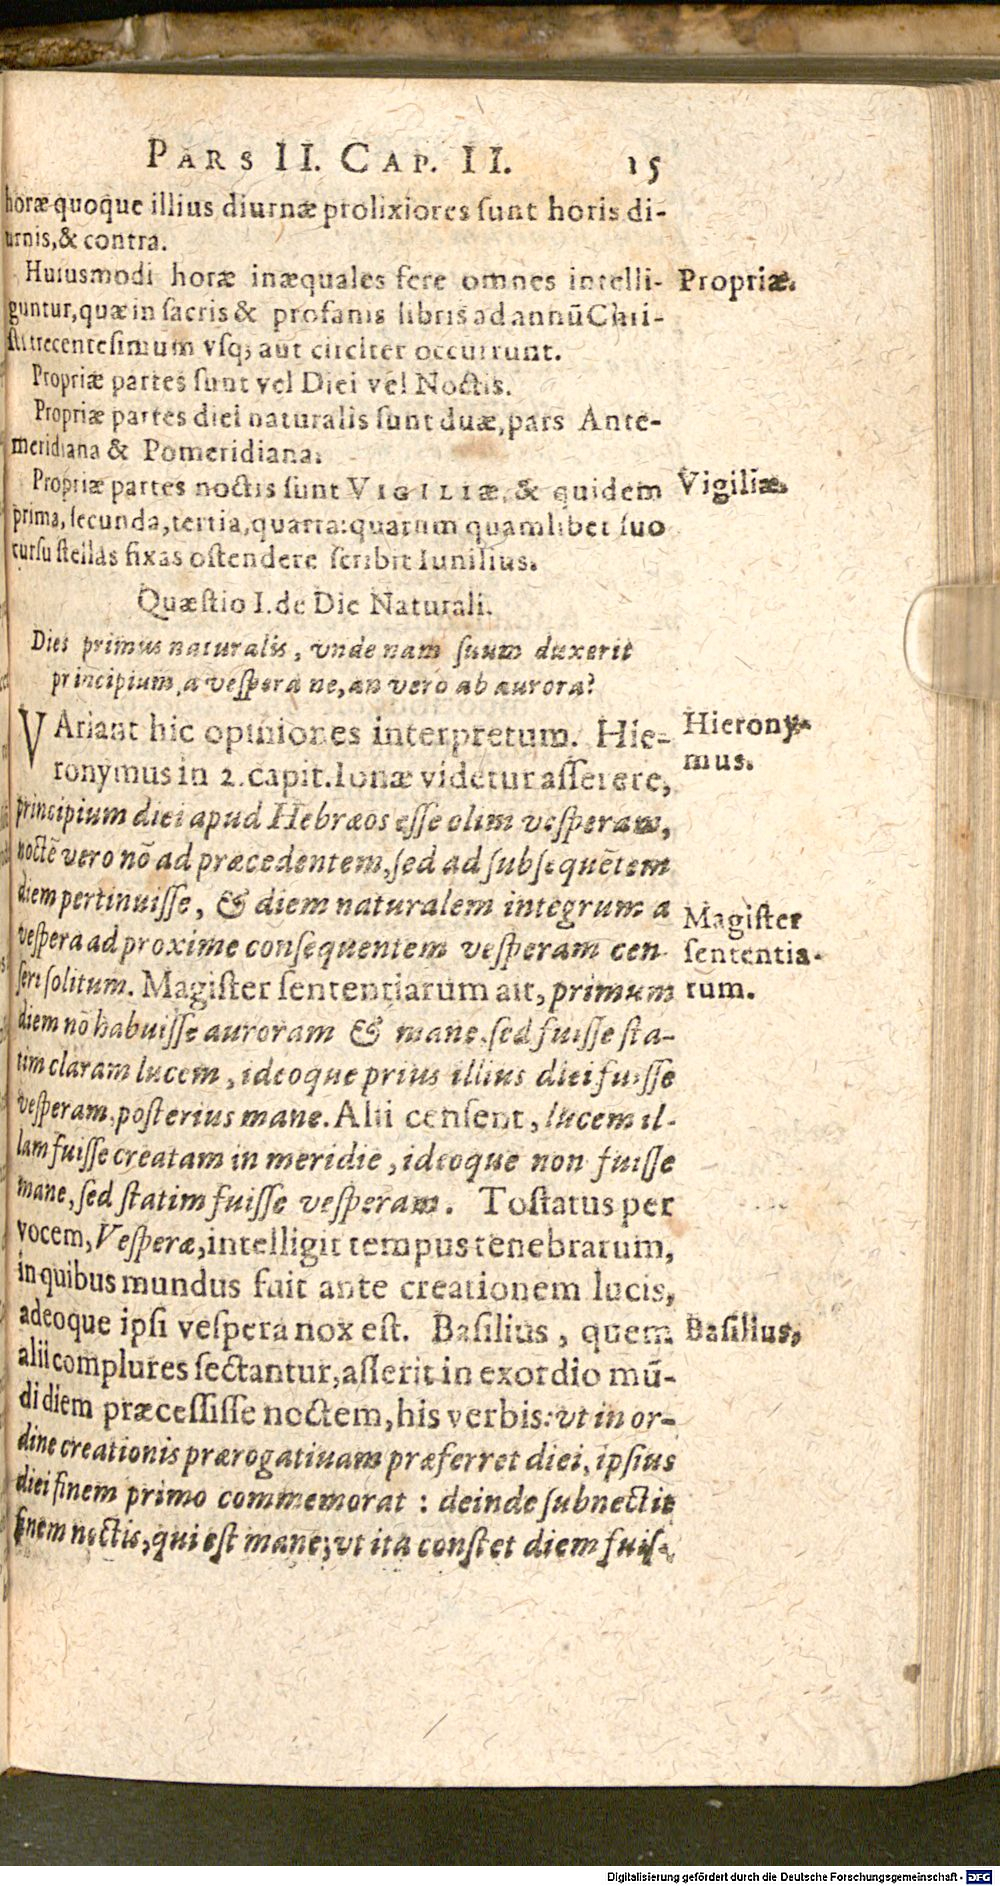 PARS II. CAP. II. 15
horæ quoque illius diurnæ prolixiores ſunt horis di-
urnis, & contra.
Huiusmodi horæ inæquales fere omnes intelli-
guntur, quæ in ſacris & profanis libris ad annũ Chri-
ſti trecentesimum vſq; aut circiter occurrunt.
Propriæ.
Propriæ partes ſunt vel Diei vel Noctis.
Propriæ partes diei naturalis ſunt duæ, pars Ante-
meridiana & Pomeridiana.
Propriæ partes noctis ſunt VIGILIæ, & quidem
prima, ſecunda, tertia, quarta: quarum quamlibet ſuo
curſu ſtellas fixas oſtendere ſcribit Iunilius.
Vigiliæ.
Quæſtio I. de Die Naturali.
Dies primus naturalis, vnde nam ſuum duxerit
principium, a veſpera ne, an vero ab aurora?
VAriant hic opiniones interpretum. Hie-
ronymus in 2. capit. Ionæ videtur aſſerere,
Hierony-
mus.
principium diei apud Hebræos eſſe olim veſperam,
noctẽ vero nõ ad præcedentem, ſed ad ſubſequẽtem
diem pertinuiſſe, & diem naturalem integrum a
veſpera ad proxime conſequentem veſperam cen-
ſeri ſolitum. Magiſter ſententiarum ait, primum
Magiſter
ſententia-
rum.
diem nõ habuiſſe auroram & mane, ſed fuiſſe ſta-
tim claram lucem, ideoque prius illius diei fuiſſe
veſperam, poſterius mane. Alii cenſent, lucem il-
lam fuiſſe creatam in meridie, ideoque non fuiſſe
mane, ſed ſtatim fuiſſe veſperam. Toſtatus per
vocem, Veſperæ, intelligit tempus tenebrarum,
in quibus mundus fuit ante creationem lucis,
adeoque ipſi veſpera nox eſt. Baſilius, quem
Baſilius,
alii complures ſectantur, aſſerit in exordio mũ-
di diem præceſſiſſe noctem, his verbis: vt in or-
dine creationis prærogatiuam præferret diei, ipſius
diei finem primo commemorat: deinde ſubnectit
finem noctis, qui eſt mane; vt ita conſtet diem fuiſ-
Digitalisierung gefördert durch die Deutsche Forschungsgemeinschaft - DFG